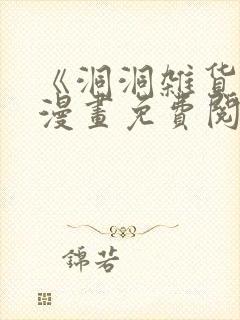 《洞洞雑貨
漫畫免費閱
錦若